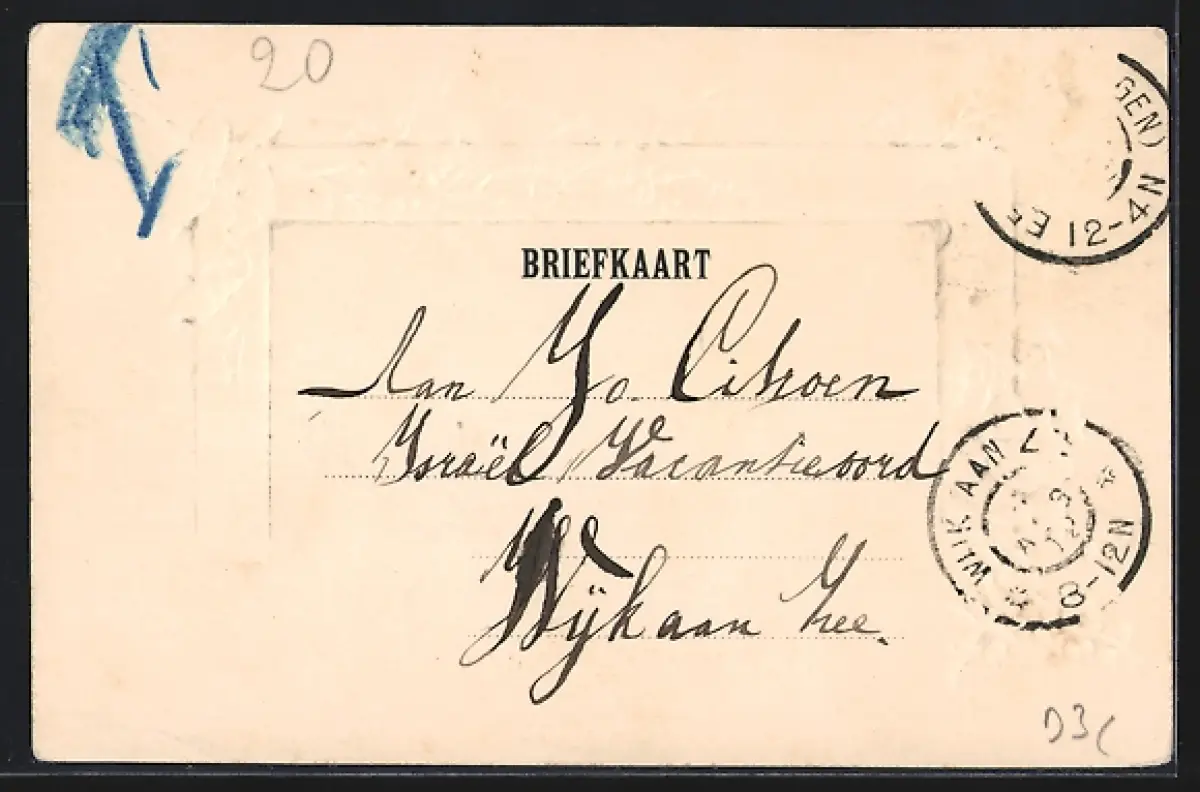 20
GEN)
12-4N
BRIEFKAART
Aan Jo. Citroen
Israël Vacantieoord
Wijk aan Zee.
WIJK AAN Z
8-12N
D3C